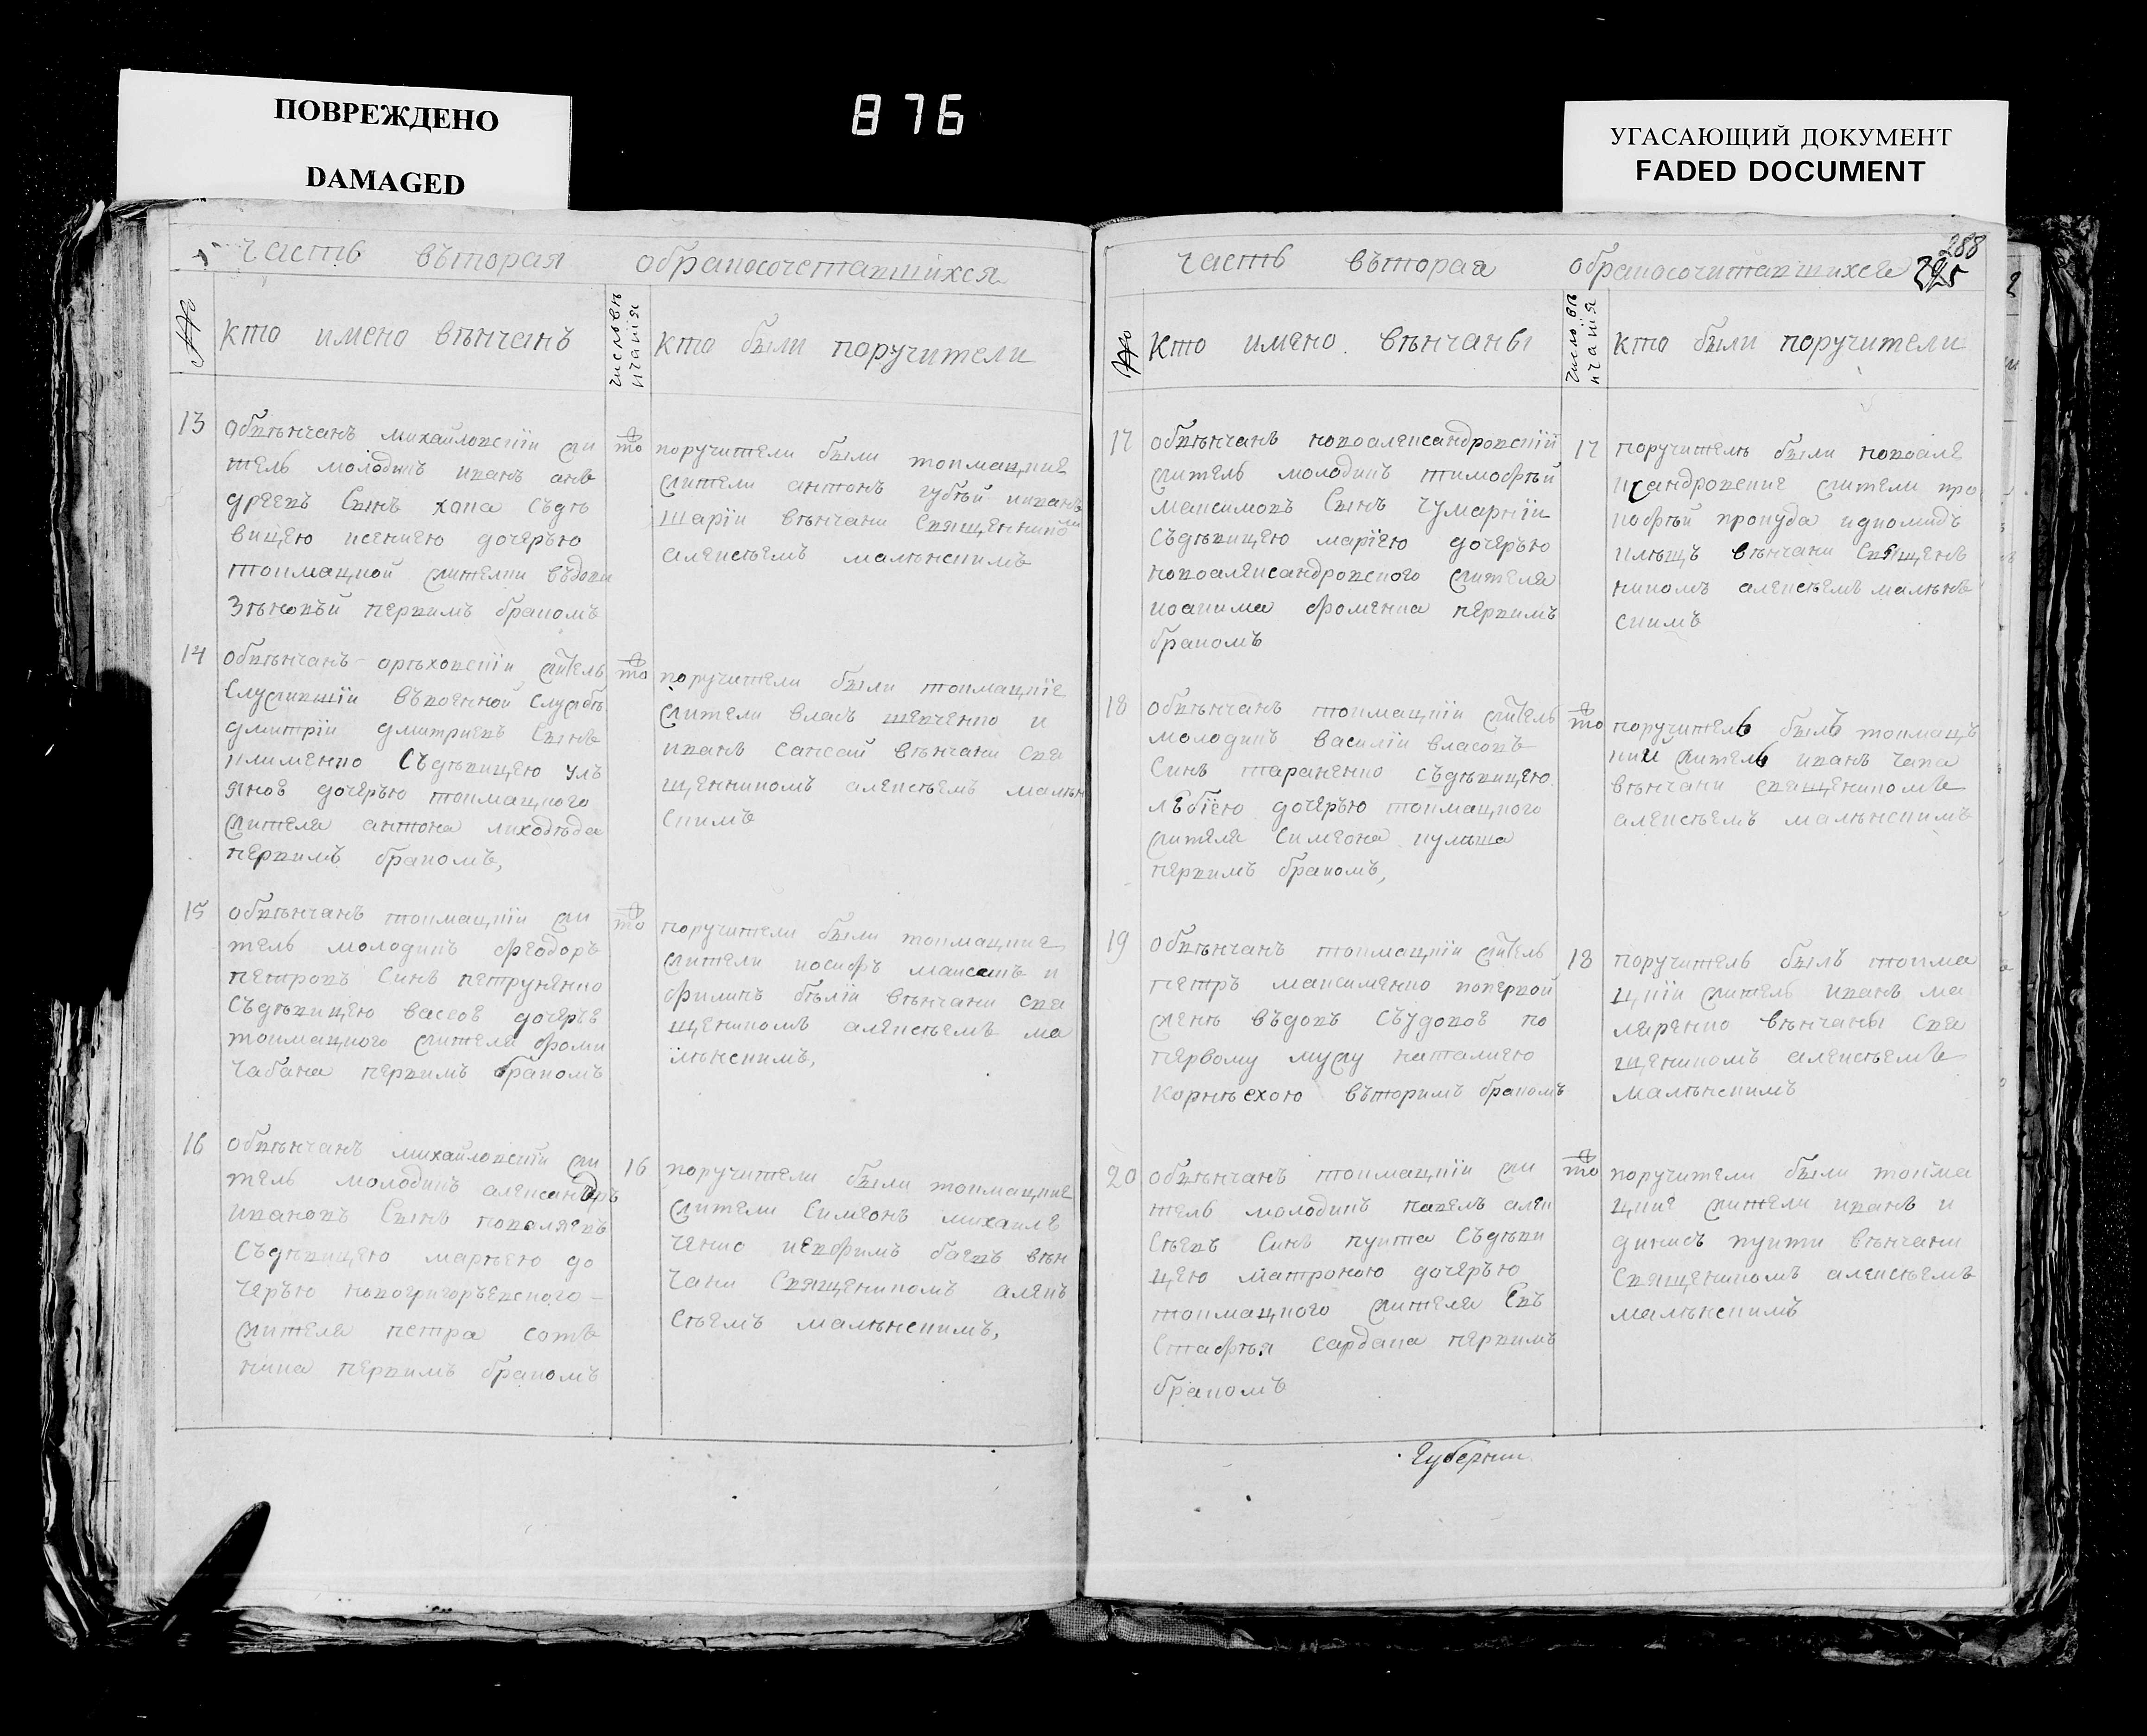 ПОВРЕЖДЕНО
DAMAGED
876
УГАСАЮЩИЙ ДОКУМЕНТ
FADED DOCUMENT
часть въторая обракосочетавшихся
№
кто имено вѣнчанъ
число вѣнчанїя
кто были поручители
13
обвѣнчанъ михайловскїи жи
тель молодикъ иванъ анъ
дреевъ Сынъ хапа Съдѣ
вицею ксениею дочерью
токмацкой жителки въдови
Зѣновъи первимъ бракомъ
то
поручители были токмацкие
жители антонъ губѣй ииванъ
шарїи вѣнчани Священникомъ
алексѣемъ малѣнскимъ
14
обвѣнчанъ орѣховскїи житель
Служившїи въвоенной Службѣ
дмитрїи дмитриевъ Сынъ
клименко Съдѣвицею улъ
яною дочерью токмацкого
жителя антона лиходѣда
первимъ бракомъ,
то
поручители были токмацкїе
жители власъ шевченко и
иванъ сапсай вѣнчани свя
щенникомъ алексѣемъ малѣн
скимъ
15
обвѣнчанъ токмацкїи жи
тель молодикъ феодоръ
петровъ Синъ петрукенко
Съдѣвицею вассою дочерью
токмацкого жителя фоми
чабана первимъ бракомъ
то
поручители были токмацкие
жители иосифъ максашъ и
филипъ бѣлїи вѣнчани свя
щеникомъ алексѣемъ ма
лѣнскимъ,
16
обвѣнчанъ михайловскїи жи
тель молодикъ александръ
ивановъ Сынъ коваляевъ
Съдѣвицею марѣею до
черью новогригоръевского
жителя петра сотъ
ника первимъ бракомъ
16
поручители были токмацкие
жители Симеонъ михайле
ченко иевфимъ баевъ вѣн
чани Священикомъ алекъ
сѣемъ малѣнскимъ,
288
часть въторая обракосочитавшихся
№
кто имяно вѣнчаны
число вѣнчанїя
кто были поручители
17
обвѣнчанъ новоалександровскїй
житель молодикъ тимофѣй
максимовъ Сынъ Чумарнїи
Съдѣвицею марїею дочерью
новоалександровского жителя
иоакима фоменка первимъ
бракомъ
17
поручителѣ были новоале
ксандровские жители про
кофѣй прокуда идиомидъ
клѣщъ вѣнчани Священъ
никомъ алексѣемъ малѣнъ
скимъ
18
обвѣнчанъ токмацкїи житель
молодикъ василїи власовъ
Синъ тараненко съдѣвицею
лѣбїею дочерью токмацкого
жителя Симеона кулѣша
первимъ бракомъ,
то
поручитель быль токмацъ
кий житель иванъ чапа
вѣнчани священикомъ
алексѣемъ малѣнскимъ
19
обвѣнчанъ токмацкїи житель
петръ максименко попервой
женѣ въдовъ Съудовою по
первому мужу наталиею
Корнѣехою въторимъ бракомъ
18
поручитель быль токма
цкїи житель иванъ ма
ляренко вѣнчаны свя
щеникомъ алексѣемъ
малѣнскимъ
20
обвѣнчанъ токмацкїи жи
тель молодикъ павелъ алек
сѣевъ Синъ пуйта Съдѣви
цею матроною дочерью
токмацкого жителя Евъ
стафѣя сардака первимъ
бракомъ
то
поручители были токма
цкие жители иванъ и
дикисъ пуйти вѣнчани
Священикомъ алексѣемъ
малѣнскимъ
Губернии